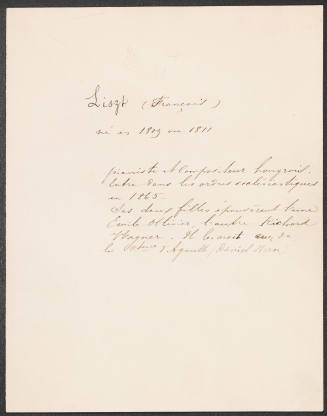 Liszt (François)
né en 1809 ou 1811
pianiste et compositeur hongrois.
Entre dans les ordres ecclésiastiques
en 1865.
Ses deux filles épousèrent l'une
Emile Ollivier, l'autre Richard
Wagner. Il les avait eues de
la d'Agoult, Daniel